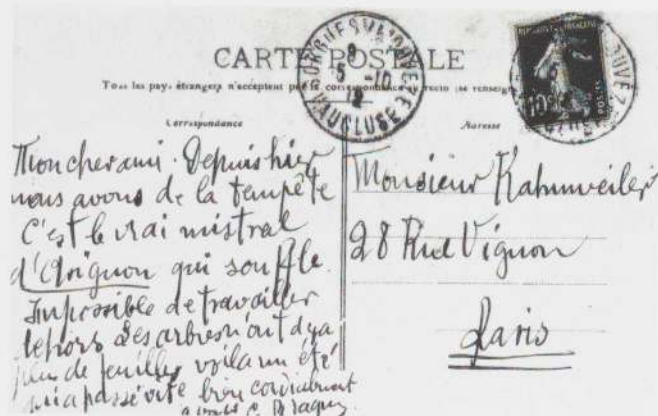 CARTE POSTALE
Tous les pays étrangers n'acceptent pas la correspondance au recto (se renseigner
Correspondance
Adresse
Mon cher ami. Depuis hier
nous avons de la tempête
C'est le vrai mistral
d'Avignon qui souffle.
Impossible de travailler
dehors Les arbres n'ont dèja
plus de feuilles voila un été
qui a passé vite bien cordialement
à vous G. Braque
Monsieur Kahnweiler
28 Rue Vignon
Paris
VAUCLUSE
5 -10
12
10c
POSTES